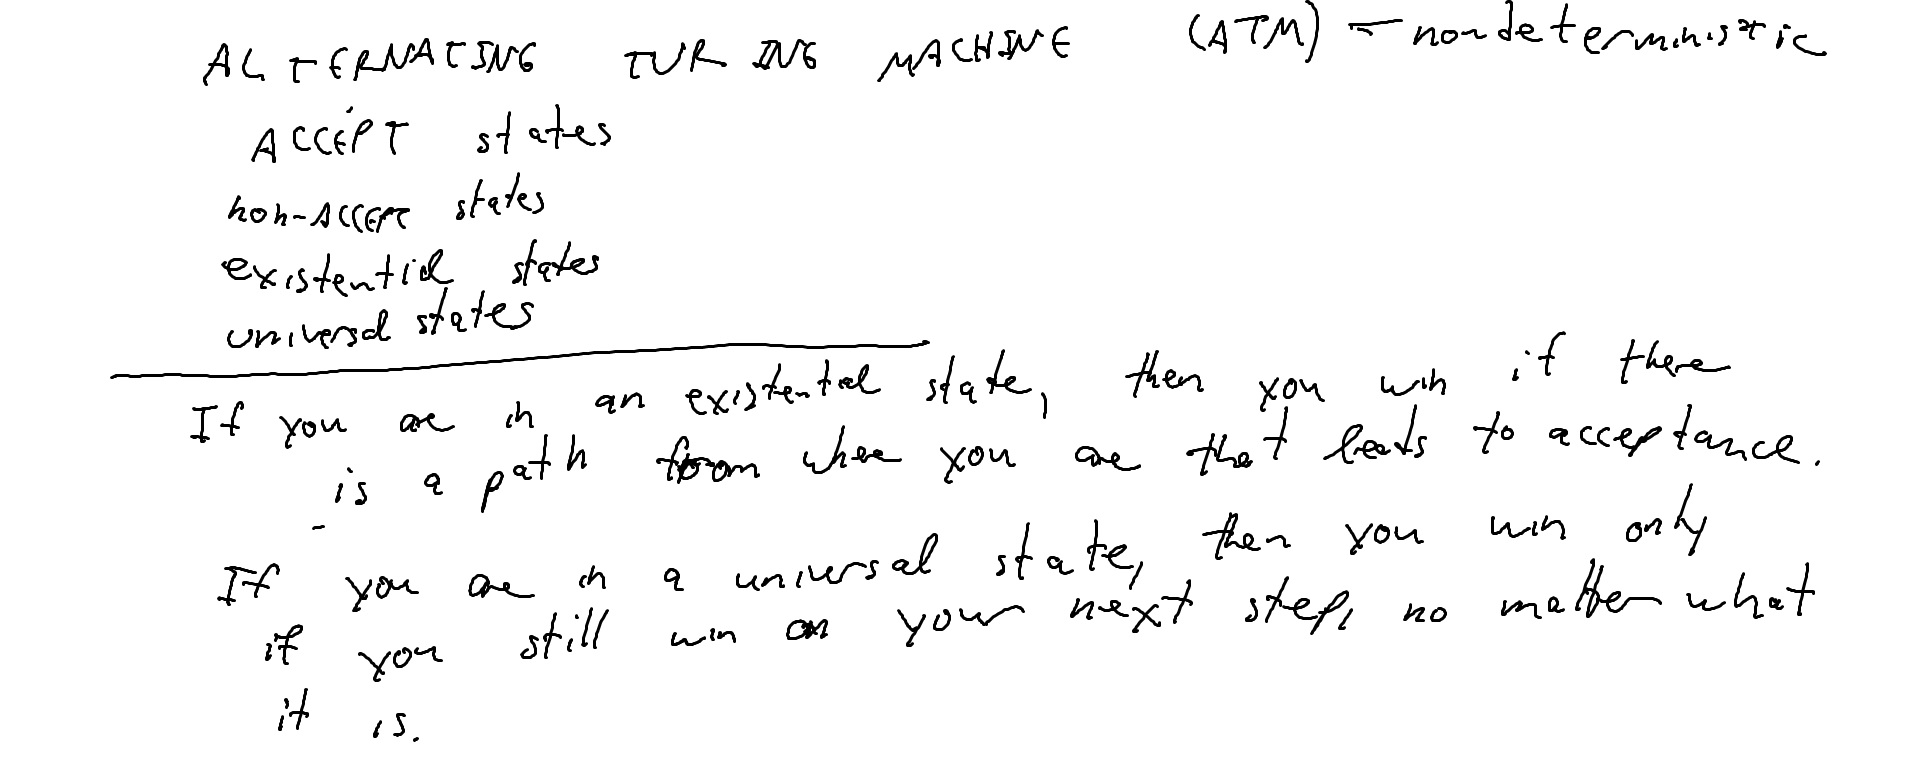 ALTERNATING TURING MACHINE (ATM) - nondeterministic
ACCEPT states
non-ACCEPT states
existential states
universal states
If you are in an existential state, then you win if there
is a path from where you are that leads to acceptance.
If you are in a universal state, then you win only
if you still win on your next step, no matter what
it is.